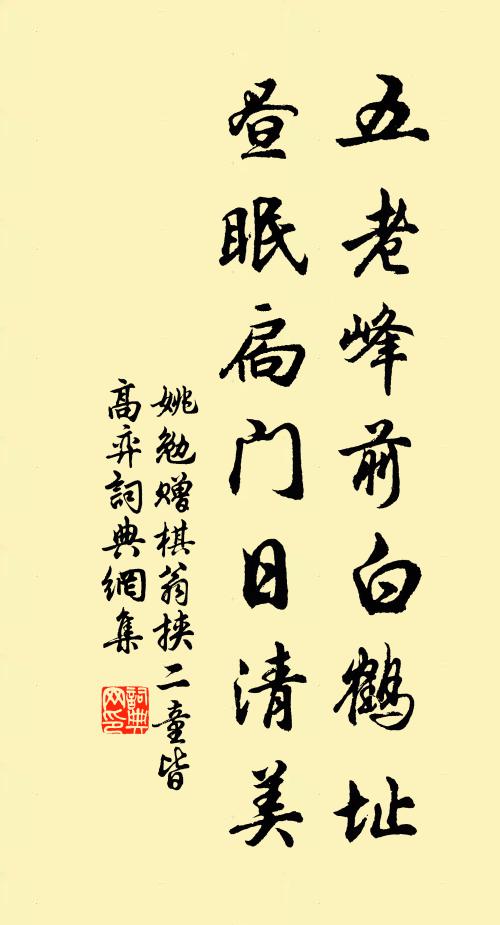 五老峰前白鶴址
昼眠扃门日清美
姚勉赠棋翁挟二童皆
高弈詞典網集
詞典网印